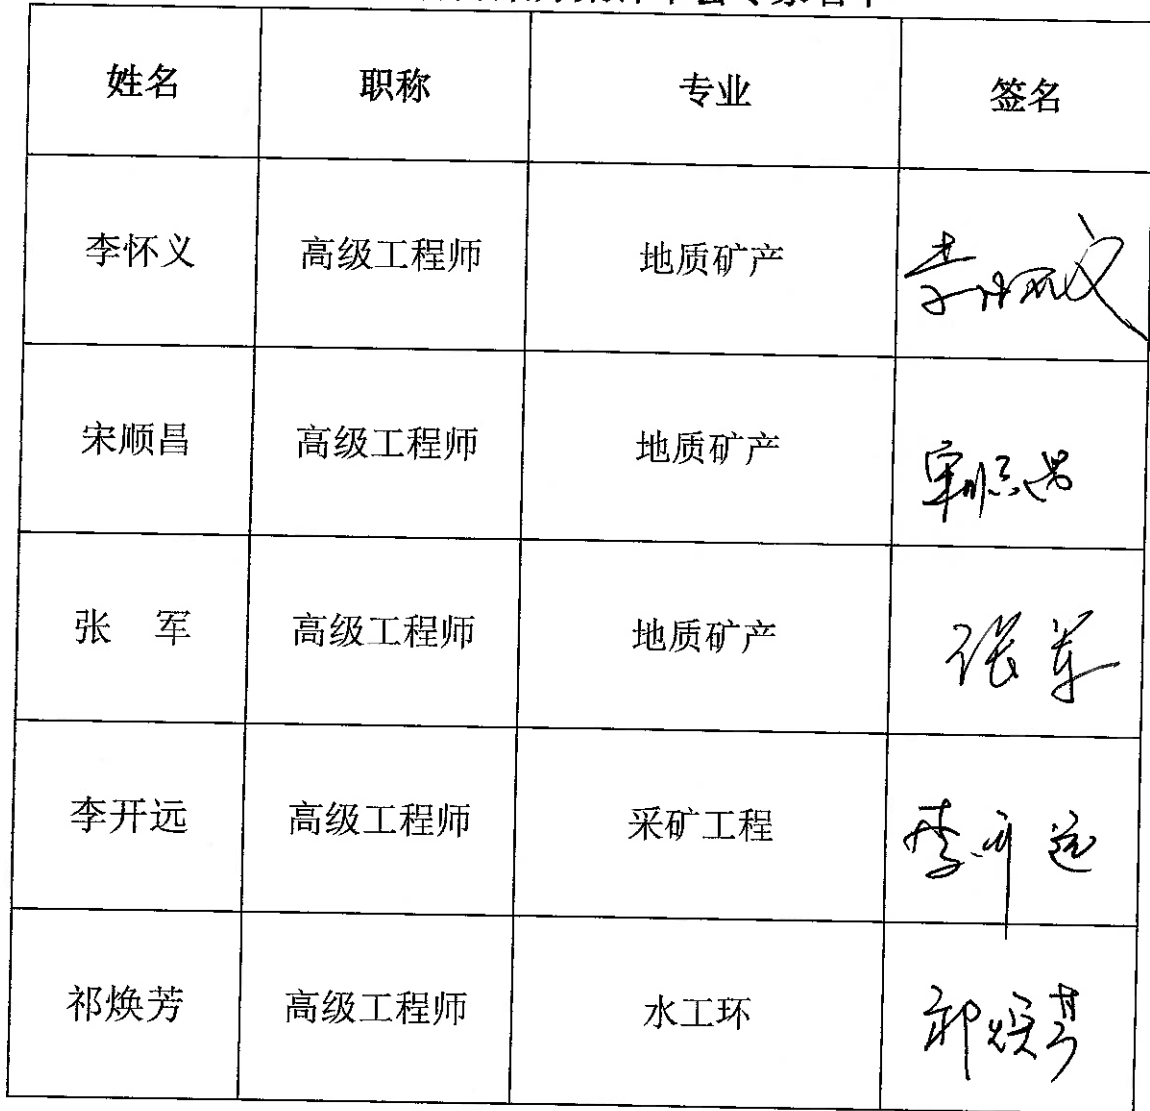 姓名 职称 专业 签名
李怀义 高级工程师 地质矿产 李怀义
宋顺昌 高级工程师 地质矿产 宋顺昌
张 军 高级工程师 地质矿产 张军
李开远 高级工程师 采矿工程 李开远
祁焕芳 高级工程师 水工环 祁焕芳